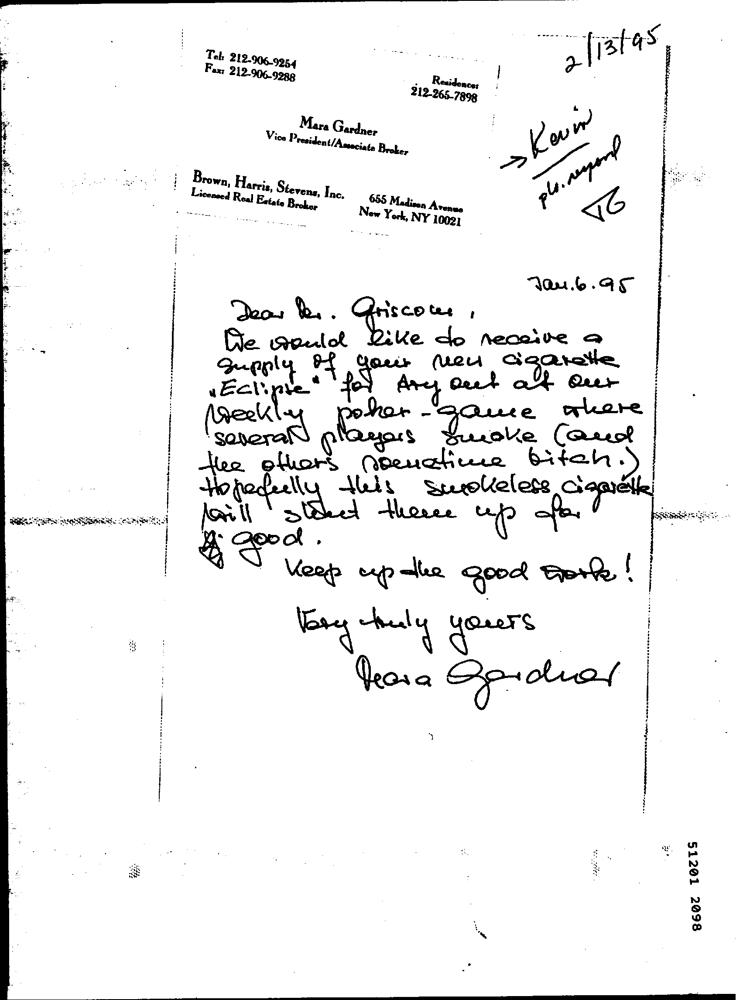 2/13/95
Tel: 212-906-9254
Fax: 212-906-9288
Residence:
212-265-7898
→ Kevin
pls. respond
TG
Mara Gardner
Vice President/Associate Broker
Brown, Harris, Stevens, Inc.
Licensed Real Estate Broker
655 Madison Avenue
New York, NY 10021
Jan. 6. 95
Dear Mr. Griscom,
We would like to receive a
supply of your new cigarette
"Eclipse" for try out at our
weekly poker-game where
several players smoke (and
the others sometime bitch.)
Hopefully this smokeless cigarette
will shut them up for
good.
Keep up the good work!
Very truly yours
Mara Gardner
51201 2098